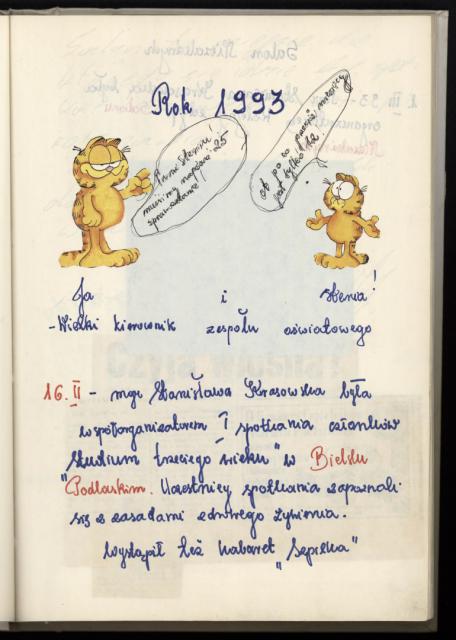 Rok 1993
Pani Stasiu!
musimy napisać 25
sprawozdanie
a po co przecież miesięcy
jest tylko 12.
Ja i Stenia!
- Wielki kierownik zespołu oświatowego
16.II - mgr Stanisława Krasowska była
współorganizatorem I spotkania członków
"Studium trzeciego wieku" w Bielsku
Podlaskim. Uczestnicy spotkania zapoznali
się z zasadami zdrowego żywienia.
Wystąpił też kabaret "Szpilka"